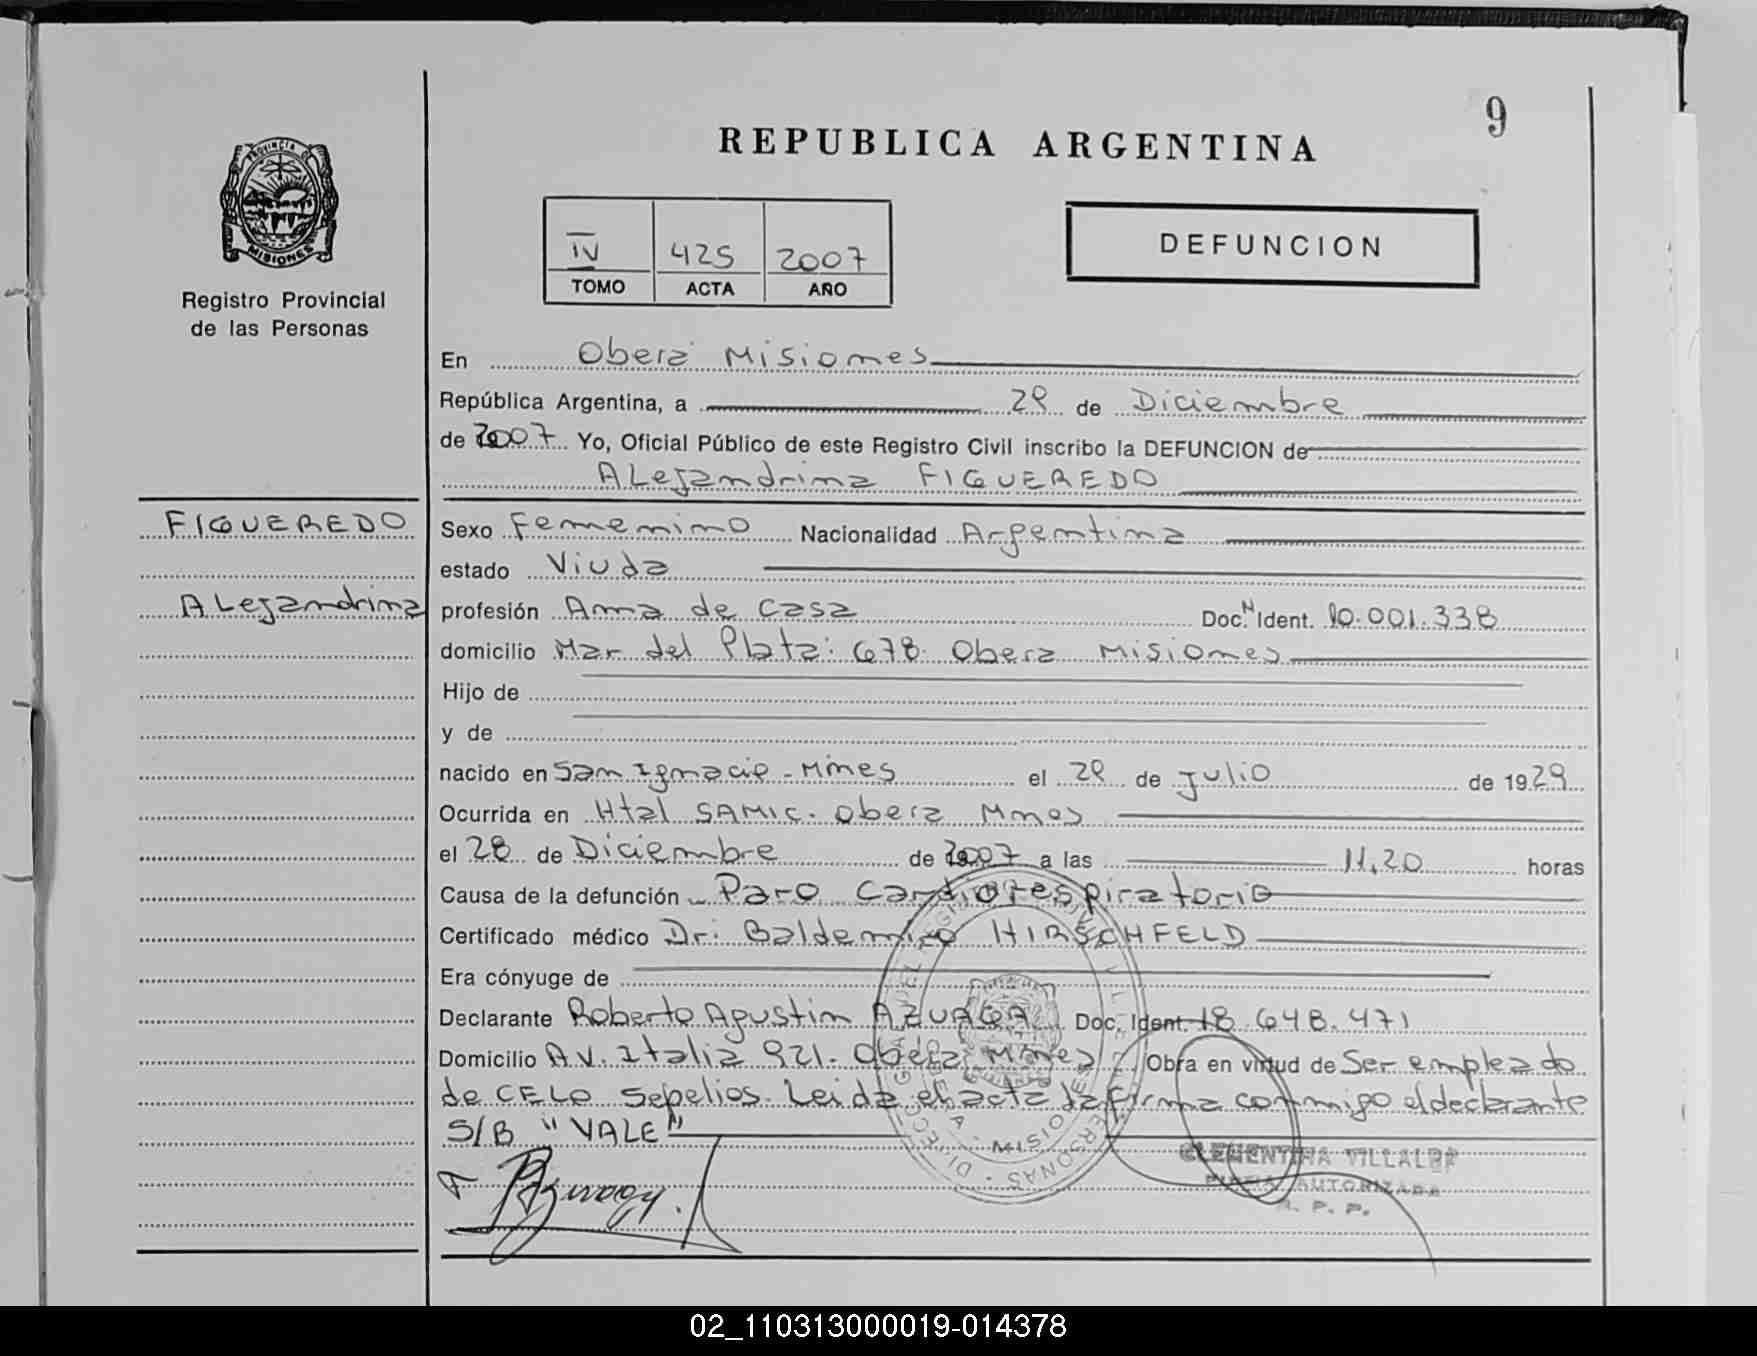 9
REPUBLICA ARGENTINA
PROVINCIA DE
MISIONES
Registro Provincial
de las Personas
IV 425 2007
TOMO ACTA AÑO
DEFUNCION
En Oberá Misiones
República Argentina, a 29 de Diciembre
de 2007 Yo, Oficial Público de este Registro Civil inscribo la DEFUNCION de
Alejandrina FIGUEREDO
FIGUEREDO
Alejandrina
Sexo Femenino Nacionalidad Argentina
estado Viuda
profesión Ama de casa Doc. N Ident. 10.001.338
domicilio Mar del Plata: 678. Obera Misiones
Hijo de
y de
nacido en San Ignacio - Mnes el 29 de Julio de 1929
Ocurrida en Htal SAMIC. Obera Mnes
el 28 de Diciembre de 2007 a las 11,20 horas
Causa de la defunción Paro Cardiorespiratorio
Certificado médico Dr: Baldemiro HIRSCHFELD
Era cónyuge de
Declarante Roberto Agustin AZUAGA Doc. Ident. 18.648.471
Domicilio AV. Italia 921. Obera Mnes Obra en virtud de Ser empleado
de CELO Sepelios. Leida el acta la firma conmigo el declarante
S/B "VALE"
CLEMENTINA VILLALBA
FIRMA AUTORIZADA
R. P. P.
02_110313000019-014378